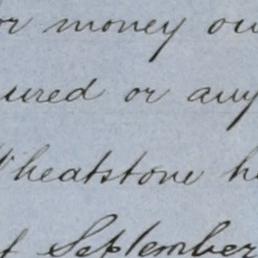 or money ow
ured or any
Wheatstone h
of September